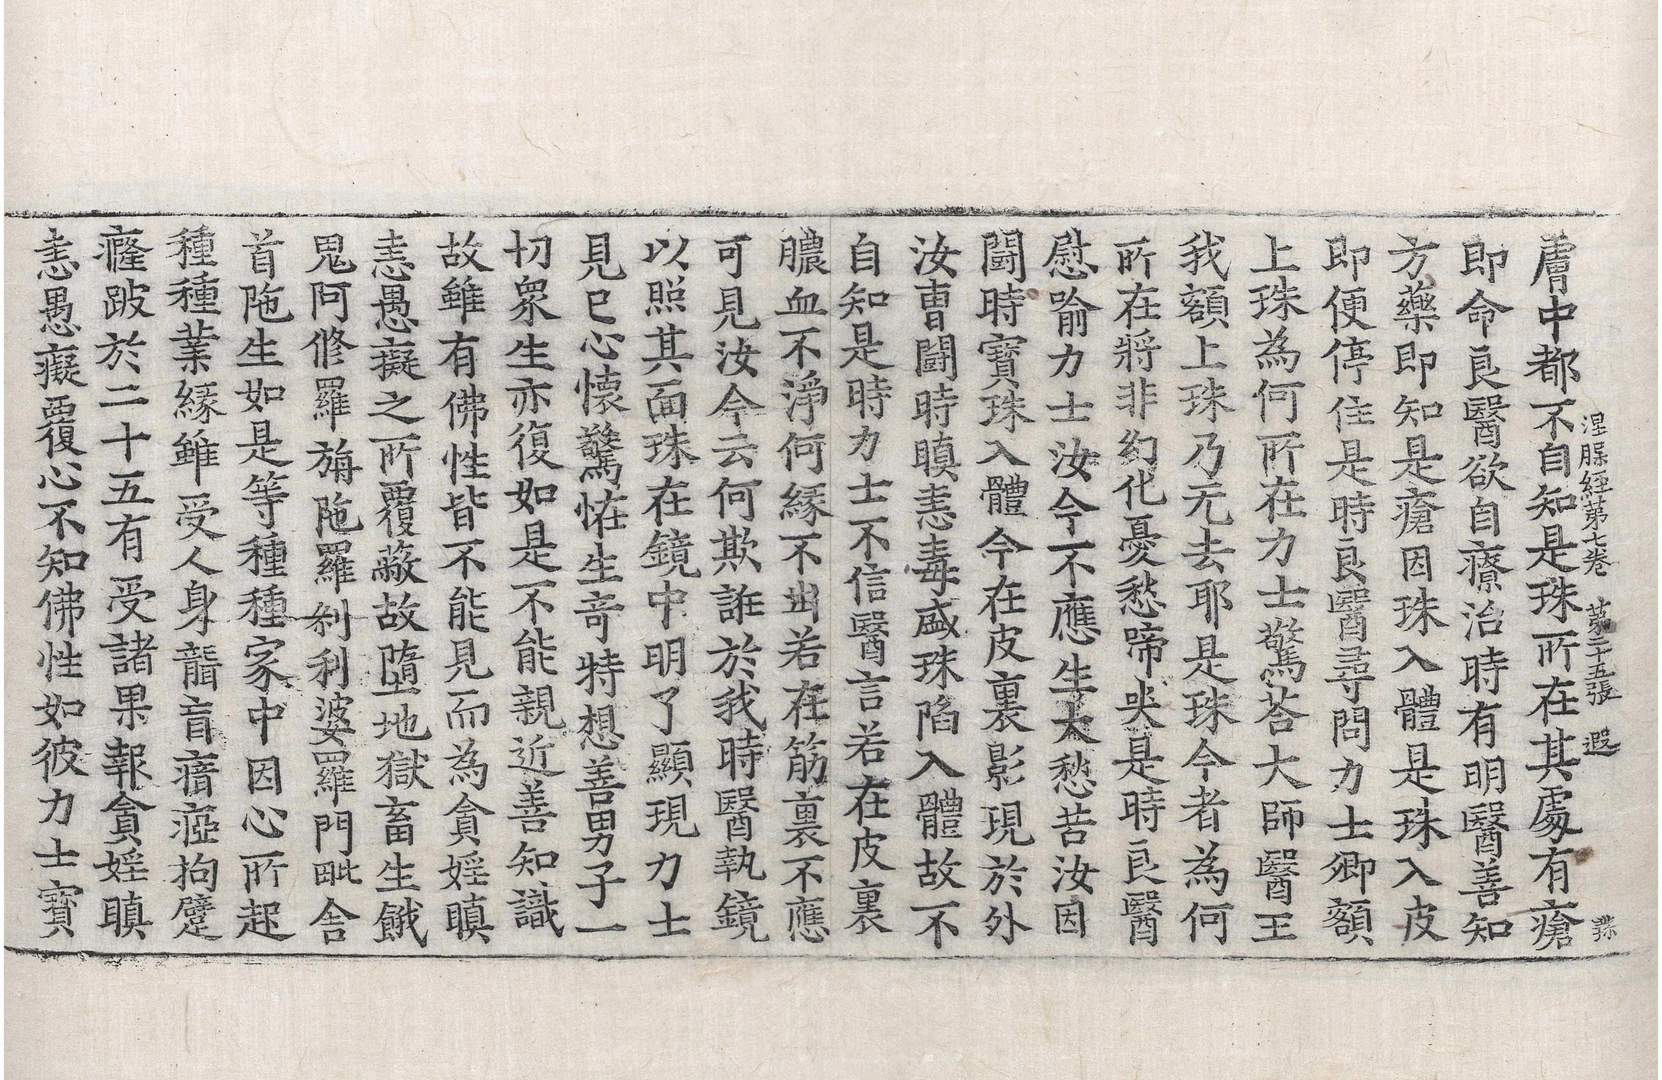 涅槃經第七卷 第二十五張 遐
膚中都不自知是珠所在其處有瘡
即命良醫欲自療治時有明醫善知
方藥即知是瘡因珠入體是珠入皮
即便停住是時良醫尋問力士卿額
上珠為何所在力士驚荅大師醫王
我額上珠乃元去耶是珠今者為何
所在將非幻化憂愁啼哭是時良醫
慰喻力士汝今不應生大愁苦汝因
鬪時寶珠入體今在皮裏影現於外
汝曺鬪時瞋恚毒盛珠陷入體故不
自知是時力士不信醫言若在皮裏
膿血不淨何緣不出若在筋裏不應
可見汝今云何欺誑於我時醫執鏡
以照其面珠在鏡中明了顯現力士
見已心懷驚恠生竒特想善男子一
切衆生亦復如是不能親近善知識
故雖有佛性皆不能見而為貪婬瞋
恚愚癡之所覆蔽故墮地獄畜生餓
鬼阿修羅旃陁羅刹利婆羅門毗舍
首陁生如是等種種家中因心所起
種種業緣雖受人身聾盲瘖瘂拘躄
癃跛於二十五有受諸果報貪婬瞋
恚愚癡覆心不知佛性如彼力士寶